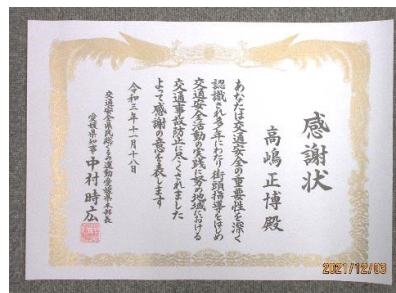 感謝状
高嶋正博 殿
あなたは交通安全の重要性を深く
認識され多年にわたり街頭指導をはじめ
交通安全活動の実践に努め地域における
交通事故防止に尽くされました
よって感謝の意を表します
令和三年十一月十八日
交通安全県民総ぐるみ運動愛媛県本部長
愛媛県知事 中村時広
2021/12/03